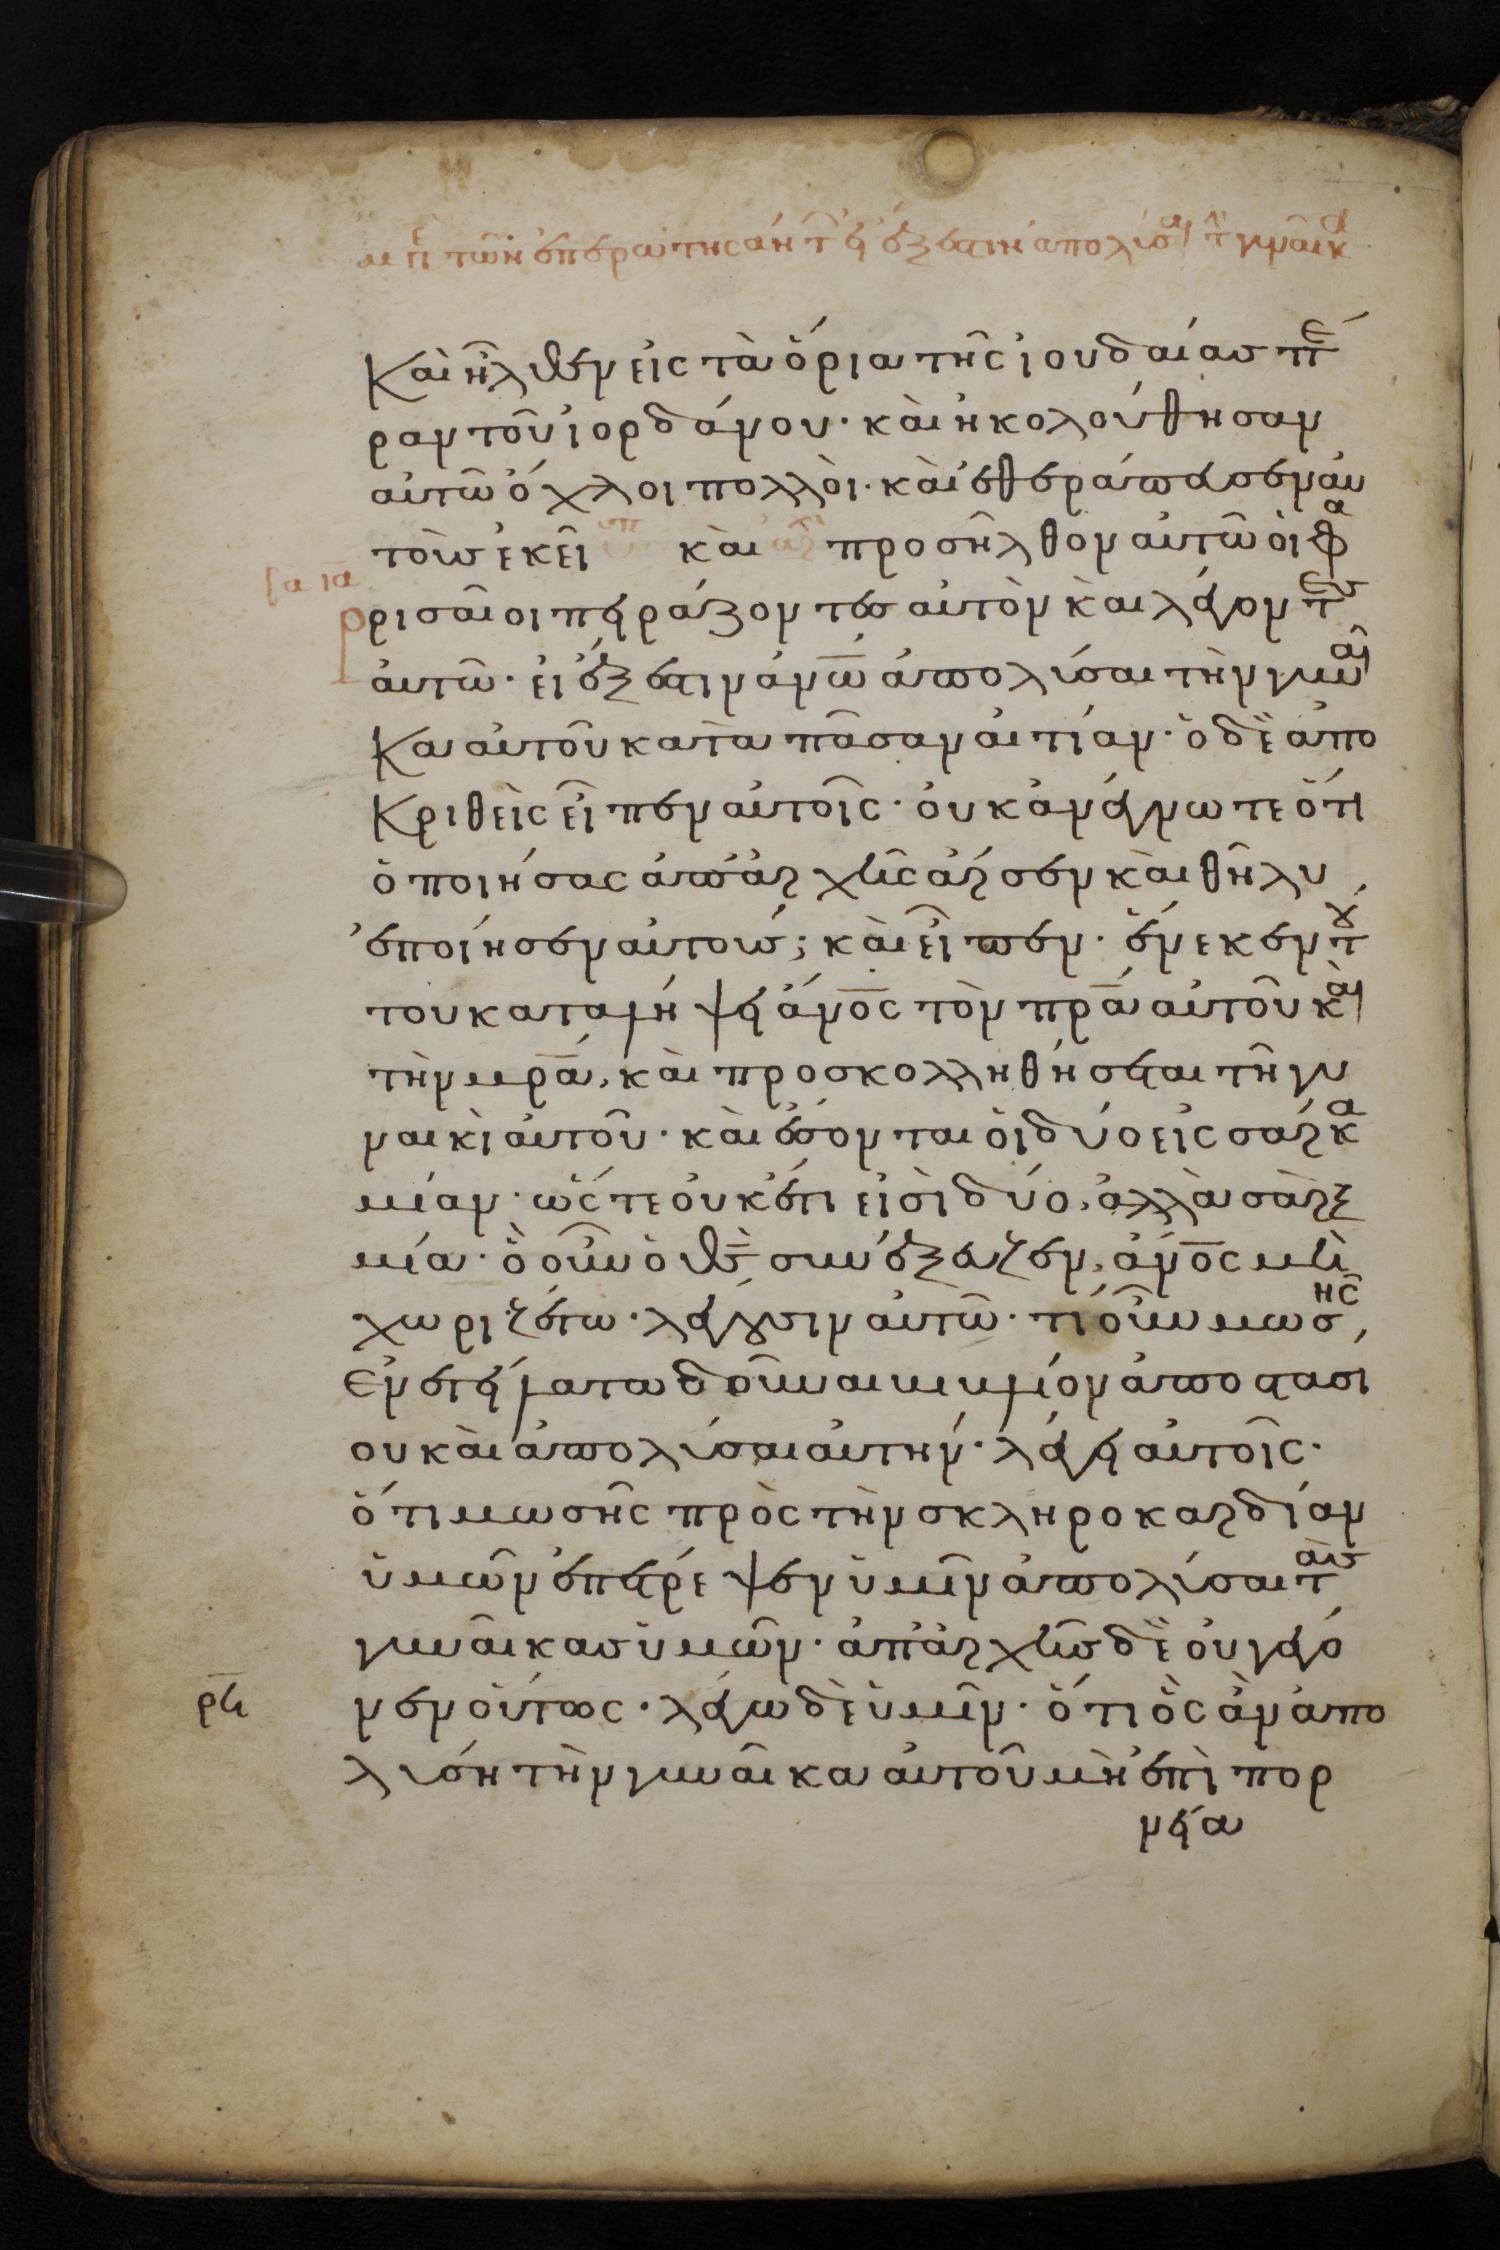 μ πε τῶν ἐπερωτησάντ εἰ ἔξεστιν ἀπολῦσαι τ γυναῖκα
Καὶ ἦλθεν εἰς τὰ ὅρια τῆς ἰουδαίας πέ
ραν τοῦ ἰορδάνου· καὶ ἠκολούθησαν
αὐτῶ ὄχλοι πολλοὶ· καὶ ἐθεράπευσεν αὐ
τοὺς ἐκεῖ καὶ προσῆλθον αὐτῶ οἱ φα
ρισαῖοι πειράζοντες αὐτὸν καὶ λέγοντες
αὐτῶ· εἰ ἔξεστιν ἀνω̅ ἀπολύσαι τὴν γυναῖ
κα αὐτοῦ κατὰ πᾶσαν αἰτίαν· ὁ δὲ ἀπο
κριθεὶς εἶπεν αὐτοῖς· οὐκ ἀνέγνωτε ὅτι
ὁ ποιήσας ἀπ' ἀρχῆς ἄρσεν καὶ θῆλυ
ἐποίησεν αὐτούς; καὶ εἶπεν· ἕνεκεν τού
του καταλείψει ἄν̅ο̅ς τὸν πρ̅α̅ αὐτοῦ καὶ
τὴν μρ̅α̅, καὶ προσκολληθήσεται τῆ γυ
ναικὶ αὐτοῦ· καὶ ἔσονται οἱ δύο εἰς σάρκα
μίαν· ὥστε οὐκ έτι εἰσὶ δύο, ἀλλὰ σὰρξ
μία· ὃ οὖν ὁ θ̅ς̅ συνέζευξεν, ἄν̅ο̅ς μὴ
χωριζέτω· λέγουσιν αὐτῶ· τί οὖν μωσῆς,
ἐνετείλατο δοῦναι βιβλίον ἀποστασί
ου καὶ ἀπολύσαι αὐτήν· λέγει αὐτοῖς·
ὅτι μωσῆς πρὸς τὴν σκληροκαρδίαν
ὑμῶν ἐπέτρεψεν ὑμῖν ἀπολύσαι τὰς
γυναῖκας ὑμῶν· ἀπ' ἀρχῆς δὲ οὐ γέγο
νεν οὕτως· λέγω δὲ ὑμῖν· ὅτι ὃς ἂν ἀπο
λύση τὴν γυναῖκα αὐτοῦ μὴ ἐπὶ πορ
νεία